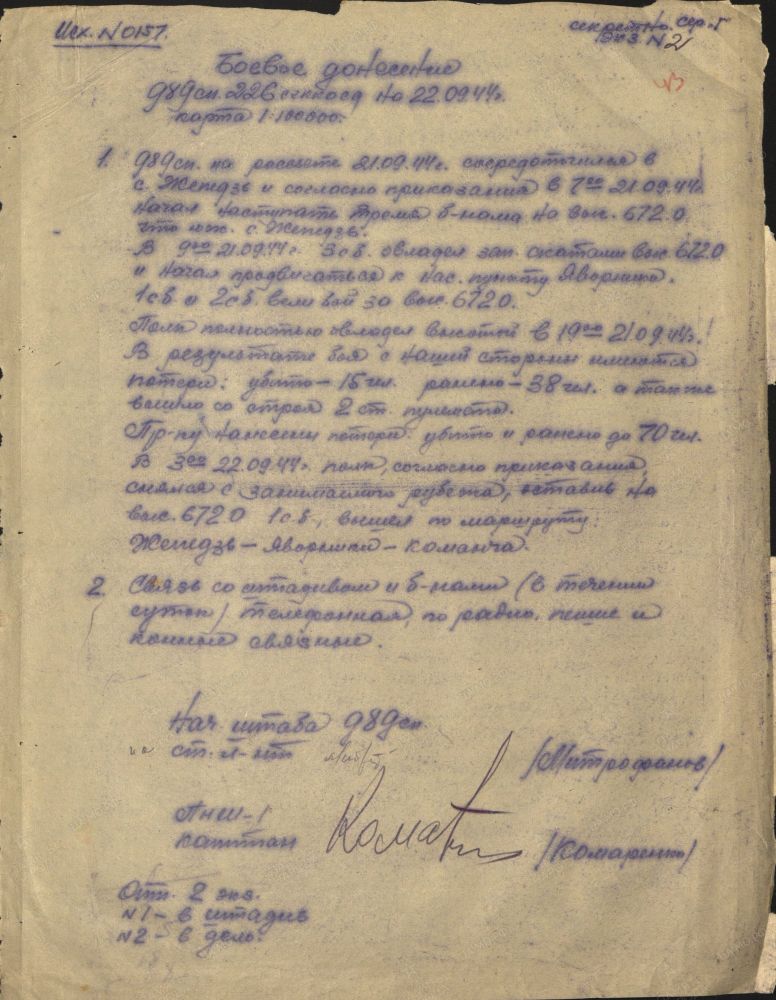 Исх. N 0157.
секретно. сер. "Г"
Экз. N 2
Боевое донесение
989 сп. 226 на 22.09.44г.
карта 1:100000.
1. 989 сп. на рассвете 21.09.44г. сосредоточился в
с. Жепедзь и согласно приказания в 7 00 21.09.44г.
начал наступать тремя б-нами на выс. 672.0
что юж. с. Жепедзь.
В 9 00 21.09.44г. 3сб. овладел зап. скатами выс. 672.0
и начал продвигаться к нас. пункту Яворники.
1сб и 2сб. вели бой за выс. 672.0.
Полк полностью овладел высотой в 19 00 21.09.44г.
В результате боя с нашей стороны имеются
потери: убито – 15 чел. ранено – 38 чел. а также
вышло со строя 2 ст. пулемета.
Пр-ку нанесены потери: убито и ранено до 70 чел.
В 3 00 22.09.44г. полк, согласно приказания,
снялся с занимаемого рубежа, оставив на
выс. 672.0 1сб, вышел по маршруту:
Жепедзь – Яворники – Команча.
2. Связь со штадивом и б-нами (в течении
суток) телефонная, по радио, пешие и
конные связные.
Нач. штаба 989 сп.
ст. л-нт /Митрофанов/
ПНШ-1
капитан /Комаренко/
Отп. 2 экз.
N1 – в штадив
N2 – в дело.